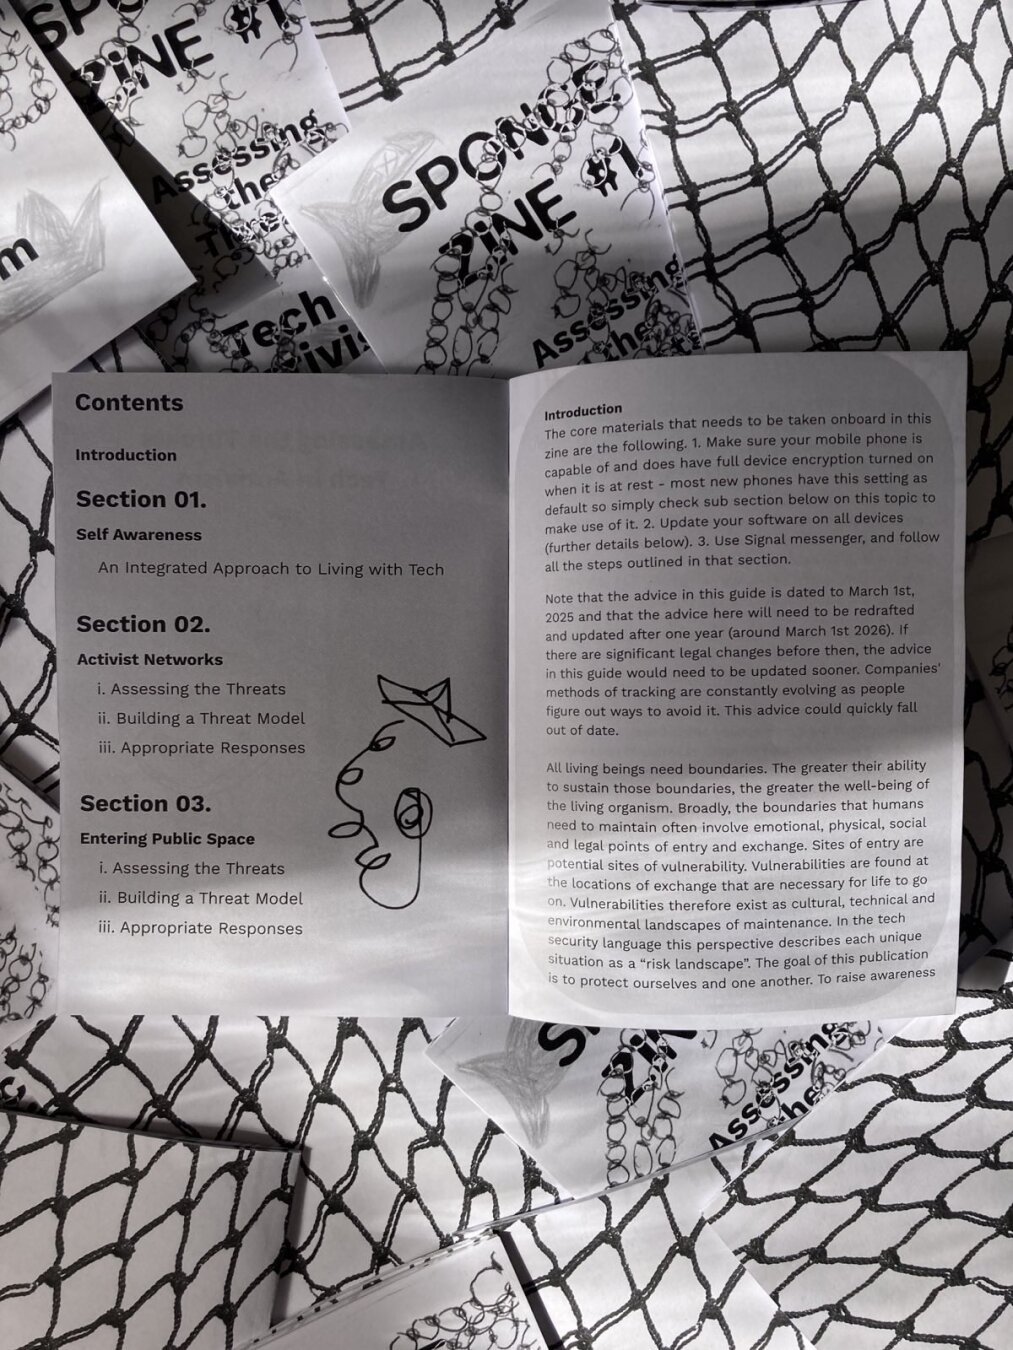 SPO
ZINE #1
Assessing
the
Tech
SPONGE
ZINE #1
Assessing
the
m
Contents
Introduction
Section 01.
Self Awareness
An Integrated Approach to Living with Tech
Section 02.
Activist Networks
i. Assessing the Threats
ii. Building a Threat Model
iii. Appropriate Responses
Section 03.
Entering Public Space
i. Assessing the Threats
ii. Building a Threat Model
iii. Appropriate Responses
Introduction
The core materials that needs to be taken onboard in this
zine are the following. 1. Make sure your mobile phone is
capable of and does have full device encryption turned on
when it is at rest - most new phones have this setting as
default so simply check sub section below on this topic to
make use of it. 2. Update your software on all devices
(further details below). 3. Use Signal messenger, and follow
all the steps outlined in that section.
Note that the advice in this guide is dated to March 1st,
2025 and that the advice here will need to be redrafted
and updated after one year (around March 1st 2026). If
there are significant legal changes before then, the advice
in this guide would need to be updated sooner. Companies'
methods of tracking are constantly evolving as people
figure out ways to avoid it. This advice could quickly fall
out of date.
All living beings need boundaries. The greater their ability
to sustain those boundaries, the greater the well-being of
the living organism. Broadly, the boundaries that humans
need to maintain often involve emotional, physical, social
and legal points of entry and exchange. Sites of entry are
potential sites of vulnerability. Vulnerabilities are found at
the locations of exchange that are necessary for life to go
on. Vulnerabilities therefore exist as cultural, technical and
environmental landscapes of maintenance. In the tech
security language this perspective describes each unique
situation as a “risk landscape”. The goal of this publication
is to protect ourselves and one another. To raise awareness
Assessing
the